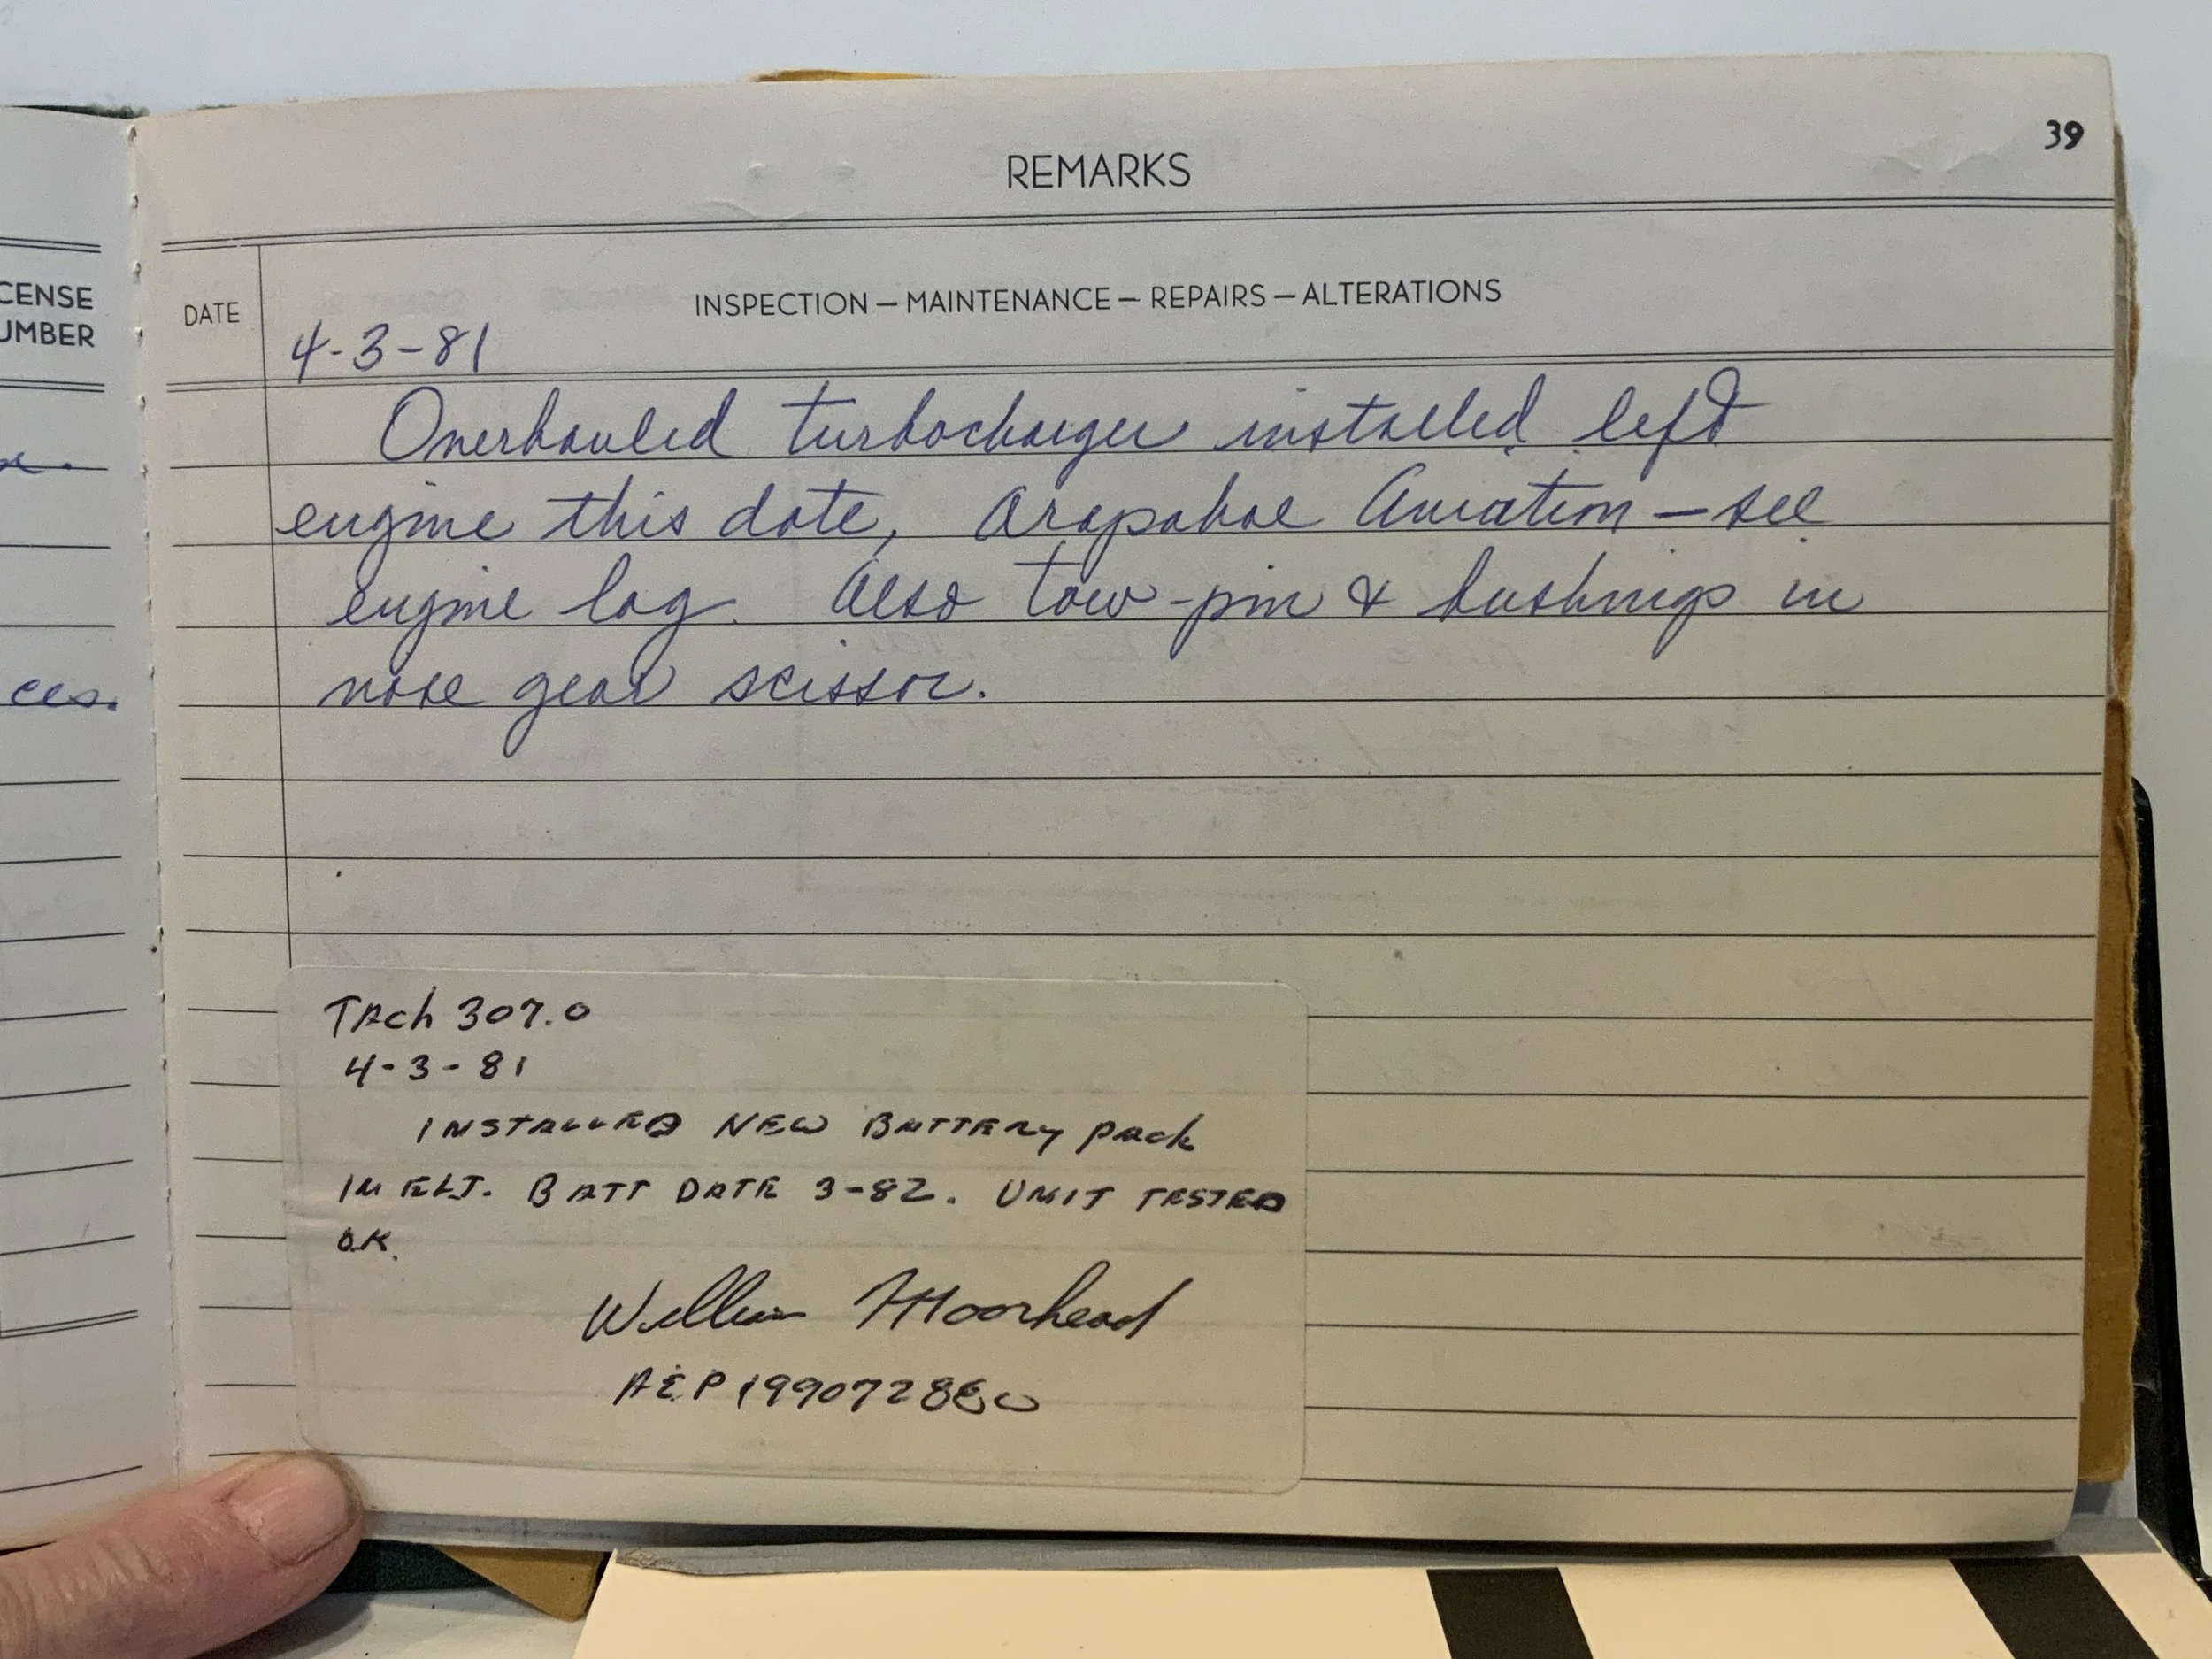 39
REMARKS
CENSE
UMBER
DATE
INSPECTION — MAINTENANCE — REPAIRS — ALTERATIONS
4-3-81
Overhauled turbocharger installed left
engine this date, Arapahoe Aviation — see
engine log. Also tow-pin & bushings in
nose gear scissor.
ces.
TAch 307.0
4-3-81
INSTALLED NEW BATTERY PACk
IN ELT. BATT DATE 3-82. UNIT TESTED
OK.
William Moorhead
A&P